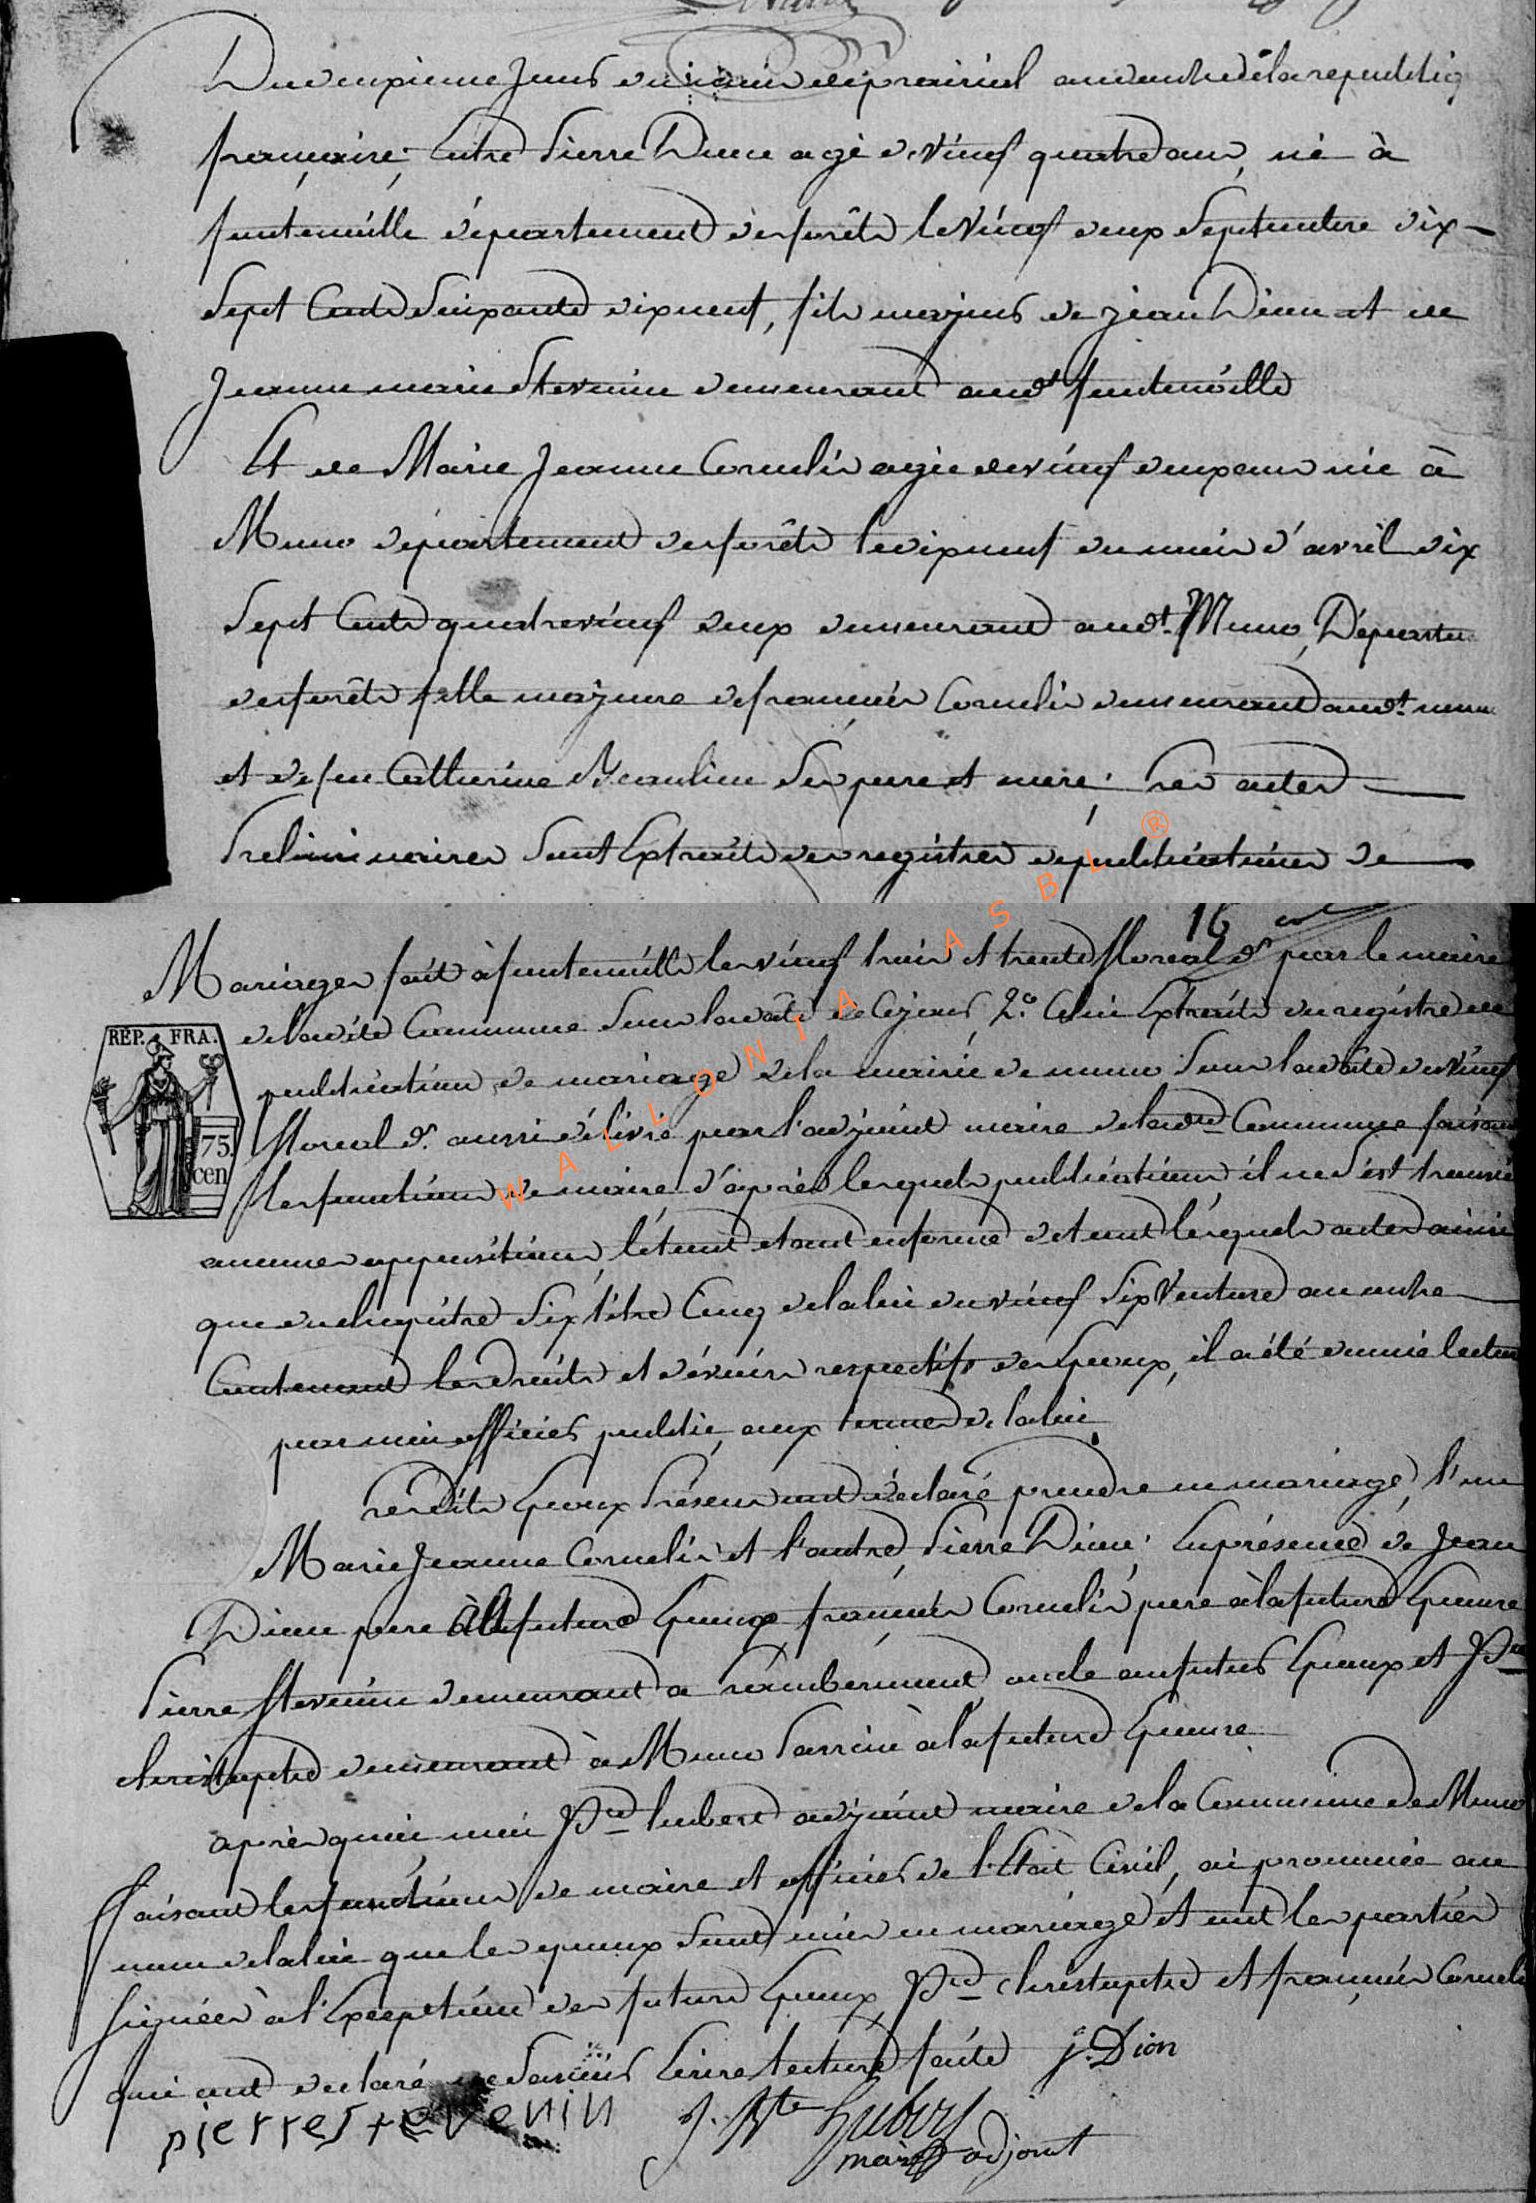 Du deuxieme jour du mois de prairial an onze de la republiq
française, Entre Pierre Dion agé de vingt quatre ans, né à
fontenoille département des forêts le vingt deux Septembre dix-
Sept Cents Soixante dix neuf, fils majeur de jean Dion et de
Jeanne marie Stevenin demeurant aud.t fontenoille
Et de Marie Jeanne Cornelis agée de vingt deux ans née à
Muno département des forêts le dix neuf du mois d'avril dix
Sept Cents quatre vingt deux demeurant aud.t Muno, Départem
des forêts fille majeure de françois Cornelis demeurant aud.t muno
et de feu Catherine Beaulieu Ses pere et mere; Les actes
Preliminaires Sont Extraits des registres de publications de
16
Mariages fait à fontenoille les vingt trois et trente floreal dr par le maire
de ladite Commune Sous la date de Cejour, 2.o Celui Extrait du registre de
publication de mariage de la mairie de muno Sous la date du vingt
floreal dr. aussi délivré par l'adjoint maire de ladte Commune faisant
les fonctions de maire d'après lesquels publications il ne s'est trouvé
aucunes oppositions, le tout etant en forme de tout lesquels actes ainsi
que du chapitre Six titre Cinq de la loi du vingt Six Ventose an onze
Contenant les droits et dévoirs respectifs des Epoux, il a été donné lecture
par moi officier public, aux termes de la loi
Lesdits Epoux Présens ont déclaré prendre en mariage, l'un
Marie Jeanne Cornelis et l'autre, Pierre Dion; En présence de Jean
Dion pere à la future Epoux, françois Cornelis pere à la future Epouse
Pierre Stevenin demeurant a Lambermont, oncle au futur Epoux et
christophe demeurant à Muno Parrain à la future Epouse
après quoi, moi hubert adjoint maire de la Commune de Muno
faisant les fonctions de maire et officier de l'Etat Civil, ai prononcé au
nom de la loi que les epoux Sont unis en mariage et ont les parties
Signées à l'Exception des futurs Epoux, christophe et françois Cornelis
qui ont declaré ne Savoir Ecrire lecture faite j. Dion
pierre stevenin j. Bte hubert
maire adjoint
REP. FRA.
75
cen
WALLONIA ASBL ®